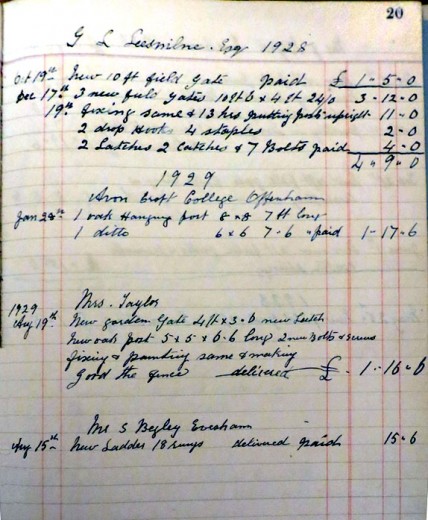 20
G L Leesmilne. Esq 1928
Oct 19th New 10 ft field Gate paid £ 1-5-0
Dec 17th 3 new field Gates 10 ft 6 x 4 ft 24/0 3-12-0
19th fixing same & 13 hrs putting posts upright 11-0
2 drop Hooks 4 staples 2-0
2 Latches 2 Catches & 7 Bolts paid 4-0
4"9"0
1929
Avon Croft College Offenham
Jan 28th 1 oak Hanging post 8 x 8 7 ft long
1 ditto 6 x 6 7-6 " paid 1-17-6
Mrs. Taylor
1929
Aug 19th New garden Gate 4 ft x 3-6 new Latch
New oak post 5 x 5 x 6-6 long 2 new Bolts & screws
fixing & painting same & making
Good the fence delivered £ 1-16-6
Mr S Begley Evesham
Aug 15th New Ladder 18 rungs delivered paid 15-6